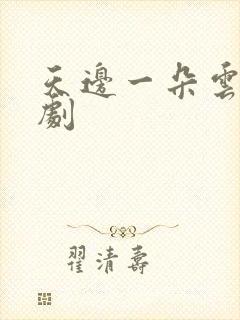 天邊一朵雲
劇
翟清壽